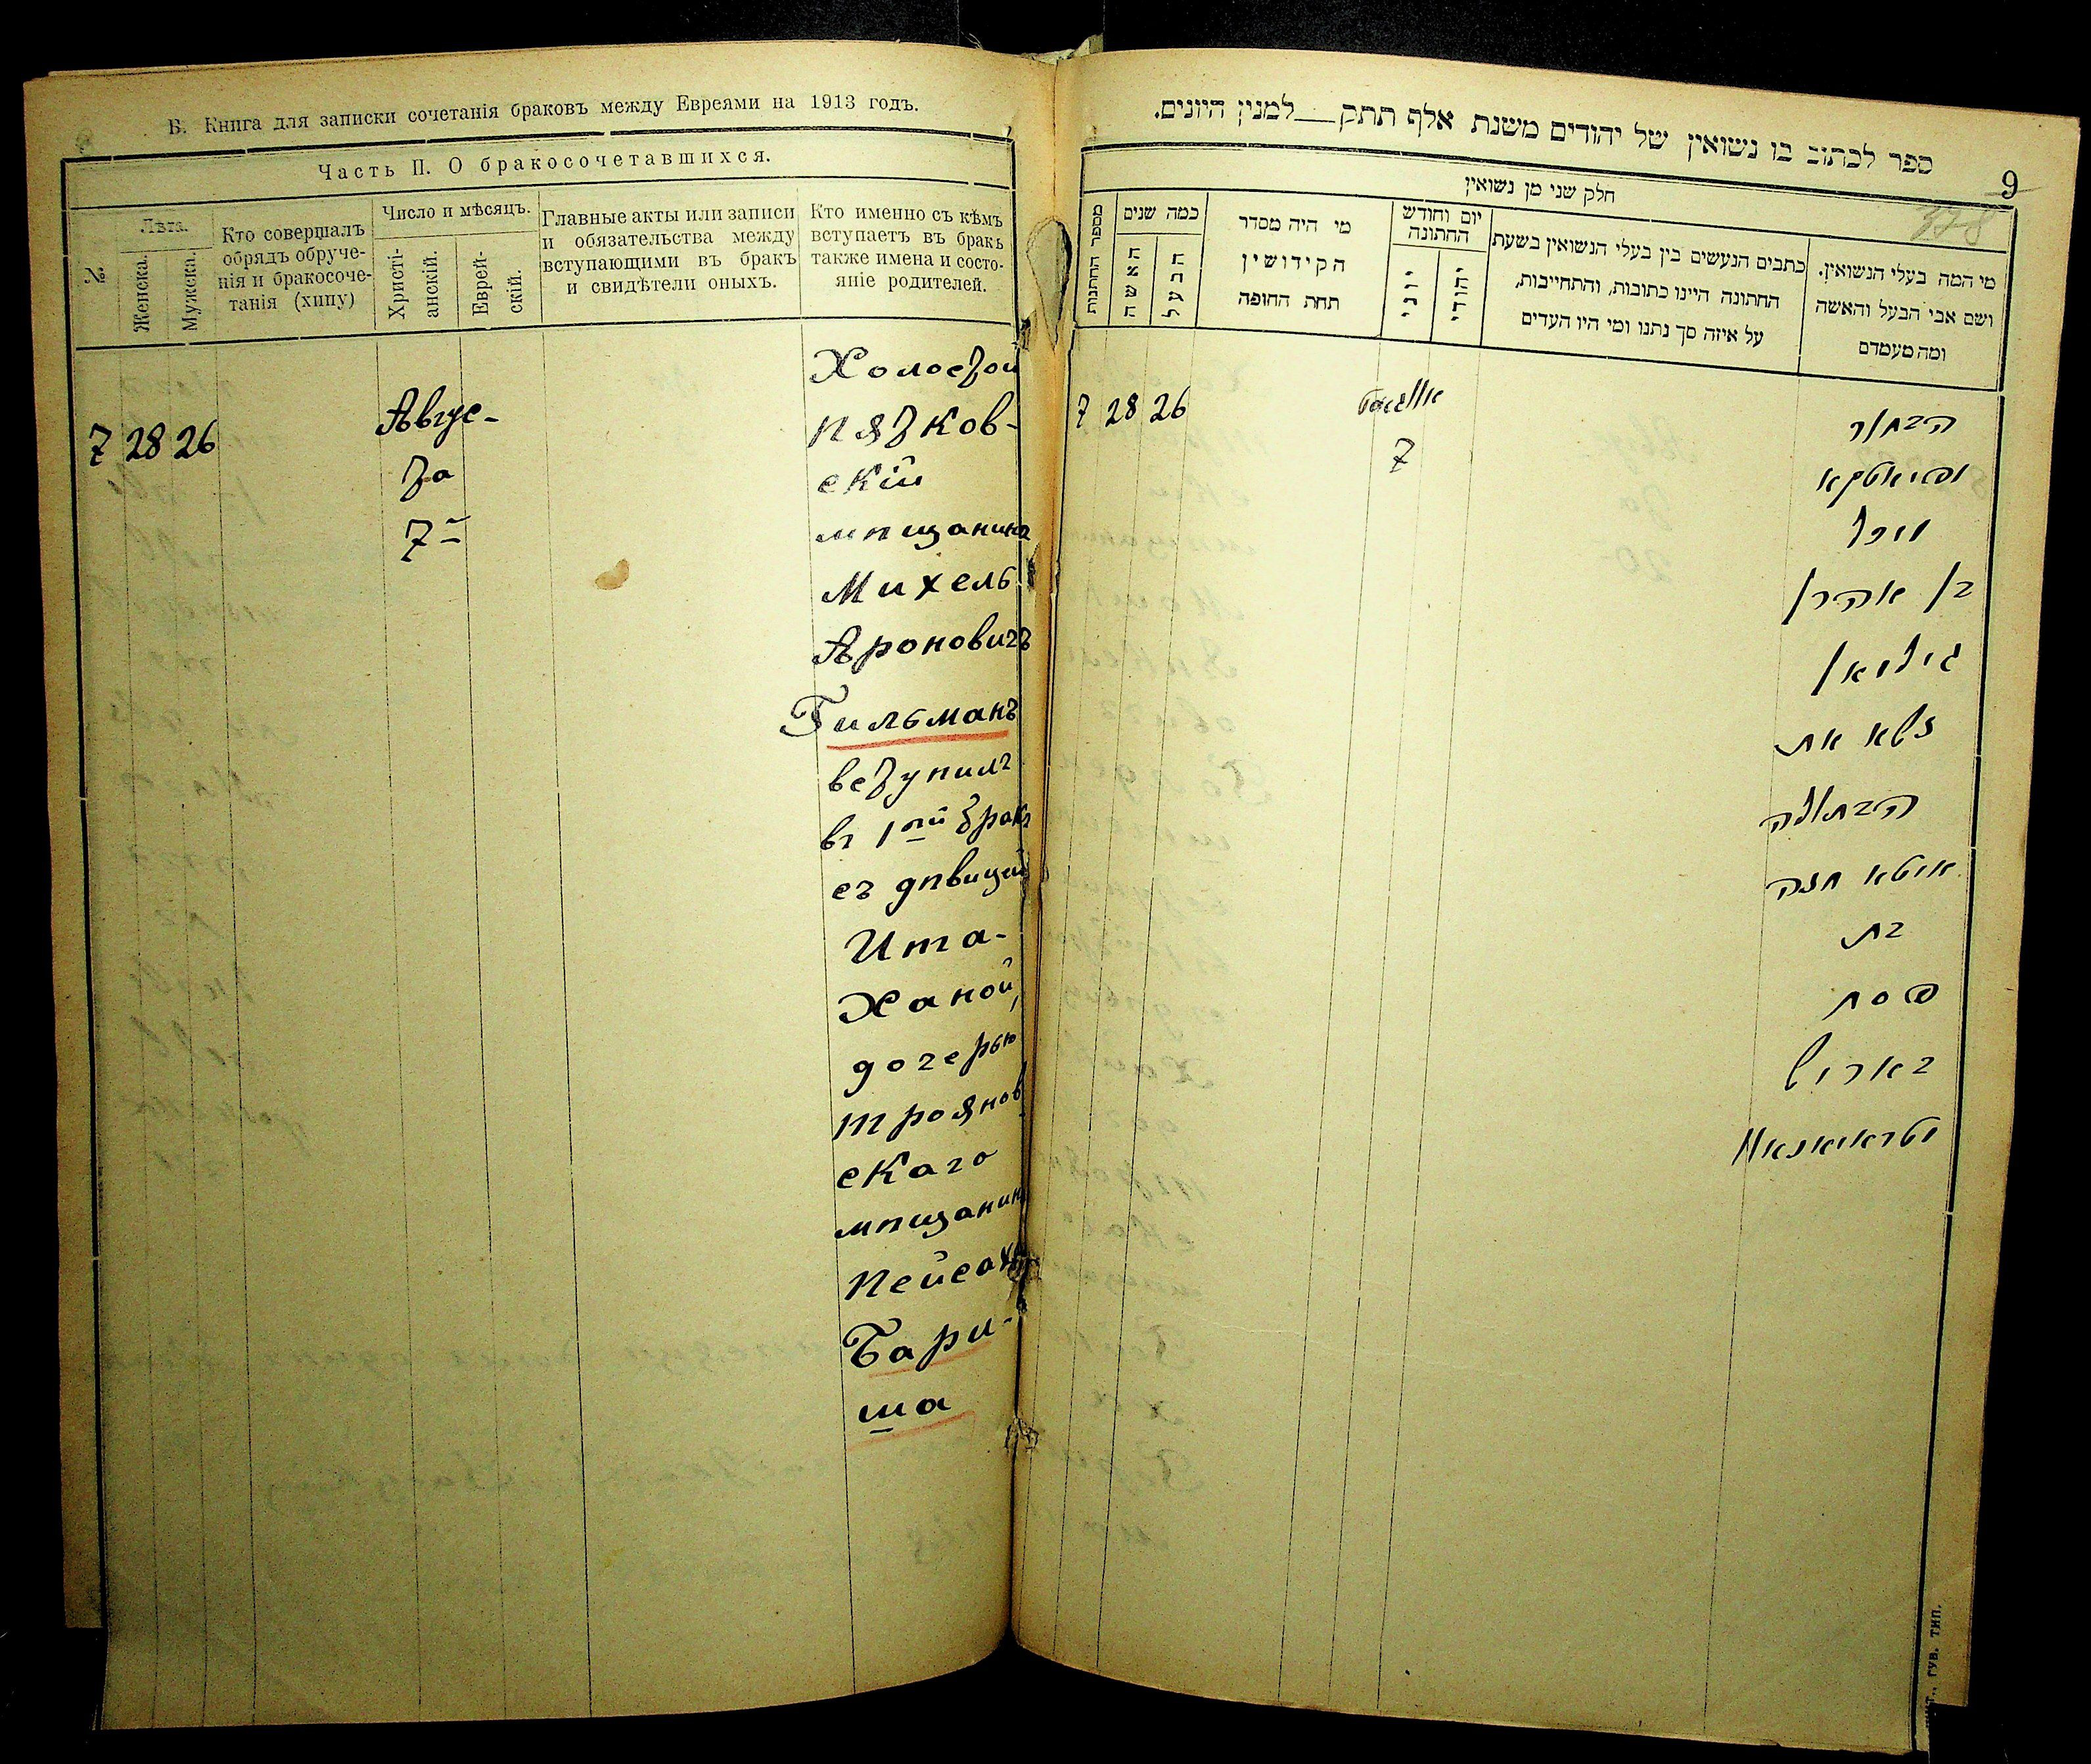 В. Книга для записки сочетанія браковъ между Евреями на 1913 годъ.
Часть II. О бракосочетавшихся.
№
Лѣта.
Женска.
Мужска.
Кто совершалъ
обрядъ обруче-
нія и бракосоче-
танія (хипу)
Число и мѣсяцъ.
Христі-
анскій.
Еврей-
скій.
Главные акты или записи
и обязательства между
вступающими въ бракъ
и свидѣтели оныхъ.
Кто именно съ кѣмъ
вступаетъ въ бракъ
также имена и состо-
яніе родителей.
7 28 26
Авгус-
та
7
Холостой
пятков-
скій
мѣщанинъ
Михель
Ароновичъ
Гильманъ
вступилъ
въ 1ый бракъ
съ дѣвицей
Ита-
Ханой,
дочерью
троянов
скаго
мѣщанина
Пейсаха
Бари-
ша
ספר לכתוב בו נשואין של יהודים משנת אלף תתק__למנין היונים.
9
378
חלק שני מן נשואין
מספר החתונות
כמה שנים
האשה
הבעל
מי היה מסדר
הקידושין
תחת החופה
יום וחודש
החתונה
יוני
יהודי
כתבים הנעשים בין בעלי הנשואין בשעת
החתונה היינו כתובות, והתחייבות,
על איזה סך נתנו ומי היו העדים
מי המה בעלי הנשואין.
ושם אבי הבעל והאשה
ומה מעמדם
7 28 26
7
הבחור
בן אהרן
גילמאן
נשא את
הבתולה
איטא חנה
בת
פסח
באריש
ГУБ. ТИП.